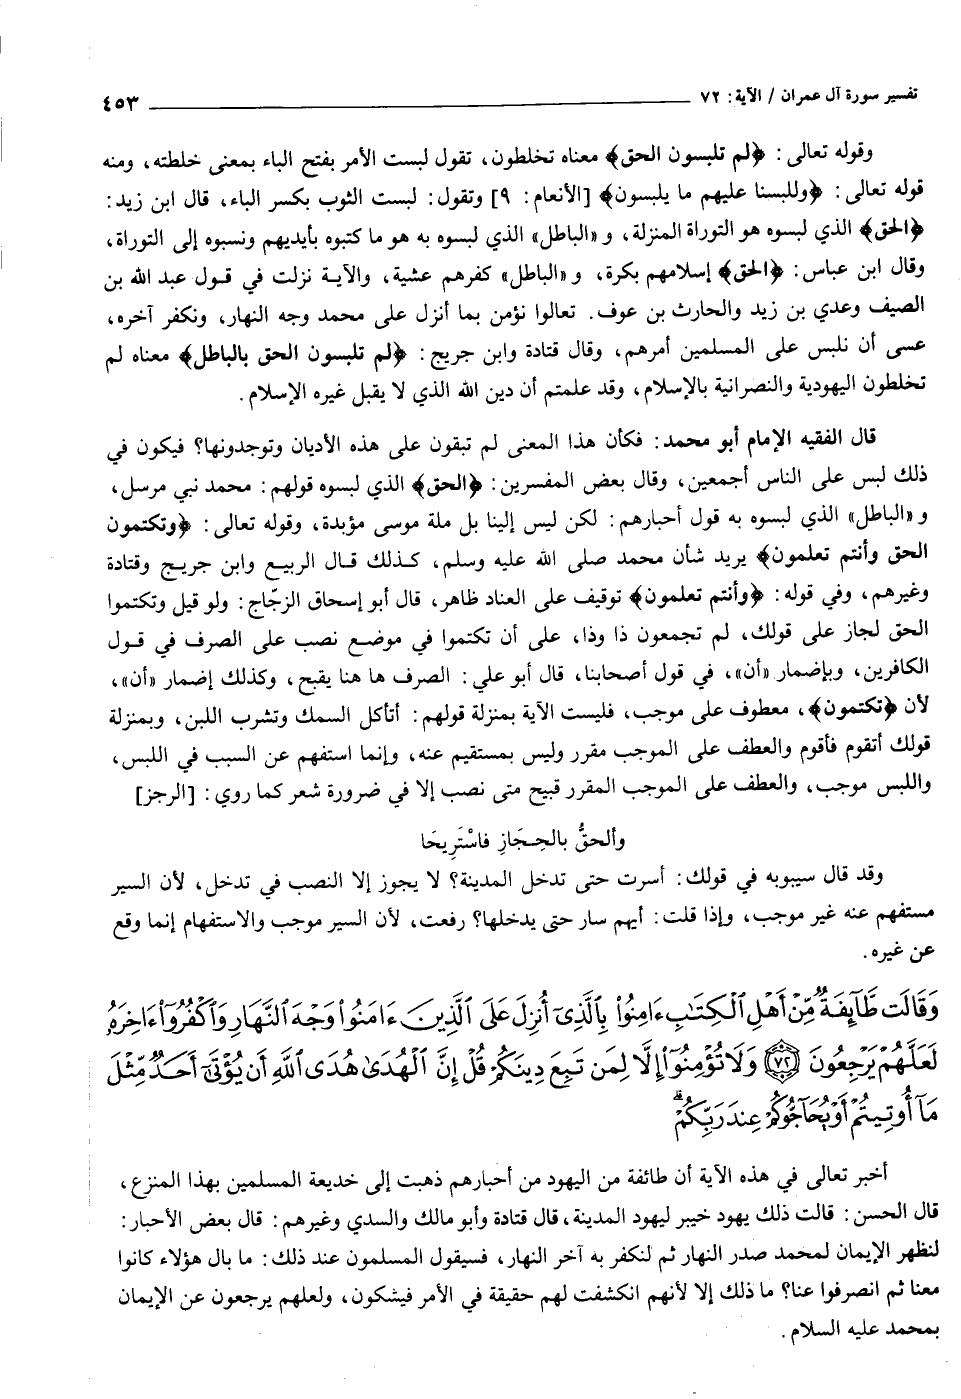 تفسير سورة آل عمران / الآية: ٧٢ ٤٥٣
وقوله تعالى: ﴿لم تلبسون الحق﴾ معناه تخلطون، تقول لبست الأمر بفتح الباء بمعنى خلطته، ومنه
قوله تعالى: ﴿وللبسنا عليهم ما يلبسون﴾ [الأنعام: ٩] وتقول: لبست الثوب بكسر الباء، قال ابن زيد:
﴿الحق﴾ الذي لبسوه هو التوراة المنزلة، و «الباطل» الذي لبسوه به هو ما كتبوه بأيديهم ونسبوه إلى التوراة،
وقال ابن عباس: ﴿الحق﴾ إسلامهم بكرة، و «الباطل» كفرهم عشية، والآية نزلت في قول عبد الله بن
الصيف وعدي بن زيد والحارث بن عوف. تعالوا نؤمن بما أنزل على محمد وجه النهار، ونكفر آخره،
عسى أن نلبس على المسلمين أمرهم، وقال قتادة وابن جريج: ﴿لم تلبسون الحق بالباطل﴾ معناه لم
تخلطون اليهودية والنصرانية بالإسلام، وقد علمتم أن دين الله الذي لا يقبل غيره الإسلام.
قال الفقيه الإمام أبو محمد: فكأن هذا المعنى لم تبقون على هذه الأديان وتوجدونها؟ فيكون في
ذلك لبس على الناس أجمعين، وقال بعض المفسرين: ﴿الحق﴾ الذي لبسوه قولهم: محمد نبي مرسل،
و «الباطل» الذي لبسوه به قول أحبارهم: لكن ليس إلينا بل ملة موسى مؤبدة، وقوله تعالى: ﴿وتكتمون
الحق وأنتم تعلمون﴾ يريد شأن محمد صلى الله عليه وسلم، كذلك قال الربيع وابن جريج وقتادة
وغيرهم، وفي قوله: ﴿وأنتم تعلمون﴾ توقيف على العناد ظاهر، قال أبو إسحاق الزجّاج: ولو قيل وتكتموا
الحق لجاز على قولك، لم تجمعون ذا وذا، على أن تكتموا في موضع نصب على الصرف في قول
الكافرين، وبإضمار «أن»، في قول أصحابنا، قال أبو علي: الصرف ها هنا يقبح، وكذلك إضمار «أن»،
لأن ﴿تكتمون﴾، معطوف على موجب، فليست الآية بمنزلة قولهم: أتأكل السمك وتشرب اللبن، وبمنزلة
قولك أتقوم فأقوم والعطف على الموجب مقرر وليس بمستقيم عنه، وإنما استفهم عن السبب في اللبس،
واللبس موجب، والعطف على الموجب المقرر قبيح متى نصب إلا في ضرورة شعر كما روي: [الرجز]
وألحقُّ بالحِجَازِ فاسْتَرِيحَا
وقد قال سيبويه في قولك: أسرت حتى تدخل المدينة؟ لا يجوز إلا النصب في تدخل، لأن السير
مستفهم عنه غير موجب، وإذا قلت: أيهم سار حتى يدخلها؟ رفعت، لأن السير موجب والاستفهام إنما وقع
عن غيره.
وَقَالَت طَّآئِفَةٌ مِّنْ أَهْلِ الْكِتَابِ ءَامِنُوا بِالَّذِىٓ أُنزِلَ عَلَى الَّذِينَ ءَامَنُوا وَجْهَ النَّهَارِ وَاكْفُرُوٓا ءَاخِرَهُ
لَعَلَّهُمْ يَرْجِعُونَ ٧٢ وَلَا تُؤْمِنُوٓا إِلَّا لِمَن تَبِعَ دِينَكُمْ قُلْ إِنَّ الْهُدَى هُدَى اللَّهِ أَن يُؤْتَىٓ أَحَدٌ مِّثْلَ
مَآ أُوتِيتُمْ أَوْ يُحَآجُّوكُمْ عِندَ رَبِّكُمْ ۗ
أخبر تعالى في هذه الآية أن طائفة من اليهود من أحبارهم ذهبت إلى خديعة المسلمين بهذا المنزع،
قال الحسن: قالت ذلك يهود خيبر ليهود المدينة، قال قتادة وأبو مالك والسدي وغيرهم: قال بعض الأحبار:
لنظهر الإيمان لمحمد صدر النهار ثم لنكفر به آخر النهار، فسيقول المسلمون عند ذلك: ما بال هؤلاء كانوا
معنا ثم انصرفوا عنا؟ ما ذلك إلا لأنهم انكشفت لهم حقيقة في الأمر فيشكون، ولعلهم يرجعون عن الإيمان
بمحمد عليه السلام.